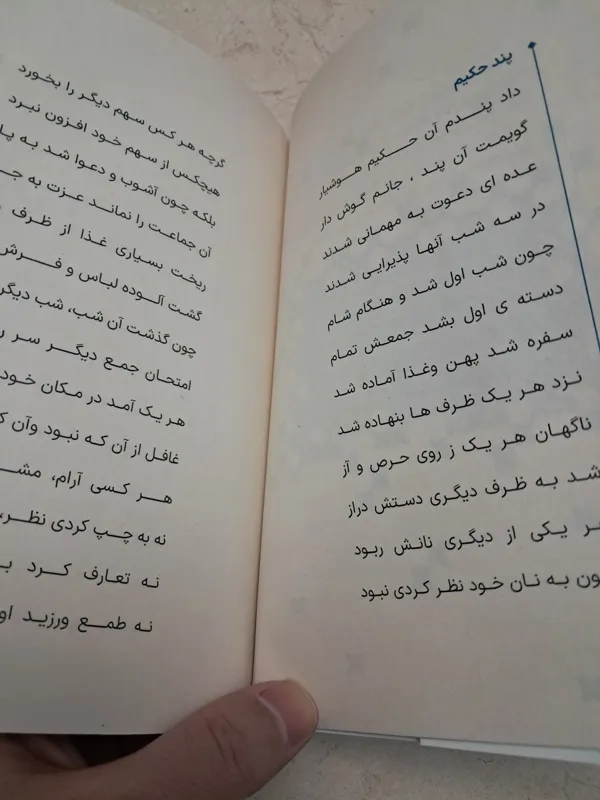 پند حکیم
داد پندم آن حکیم هوشیار
گویمت آن پند ، جانم گوش دار
عده ای دعوت به مهمانی شدند
در سه شب آنها پذیرایی شدند
چون شب اول شد و هنگام شام
دسته ی اول بشد جمعش تمام
سفره شد پهن وغذا آماده شد
نزد هر یک ظرف ها بنهاده شد
ناگهان هر یک ز روی حرص و آز
شد به ظرف دیگری دستش دراز
یکی از دیگری نانش ربود
به نان خود نظر کردی نبود
گرچه هر کس سهم دیگر را بخورد
هیچکس از سهم خود افزون نبرد
بلکه چون آشوب و دعوا شد به
آن جماعت را نماند عزت به
ریخت بسیاری غذا از ظرف
گشت آلوده لباس و فرش
چون گذشت آن شب، شب دیگر
امتحان جمع دیگر سر
هر یک آمد در مکان خود
غافل از آن که نبود وآن
هر کسی آرام،
نه به چپ کردی نظر،
نه تعارف کرد
نه طمع ورزید